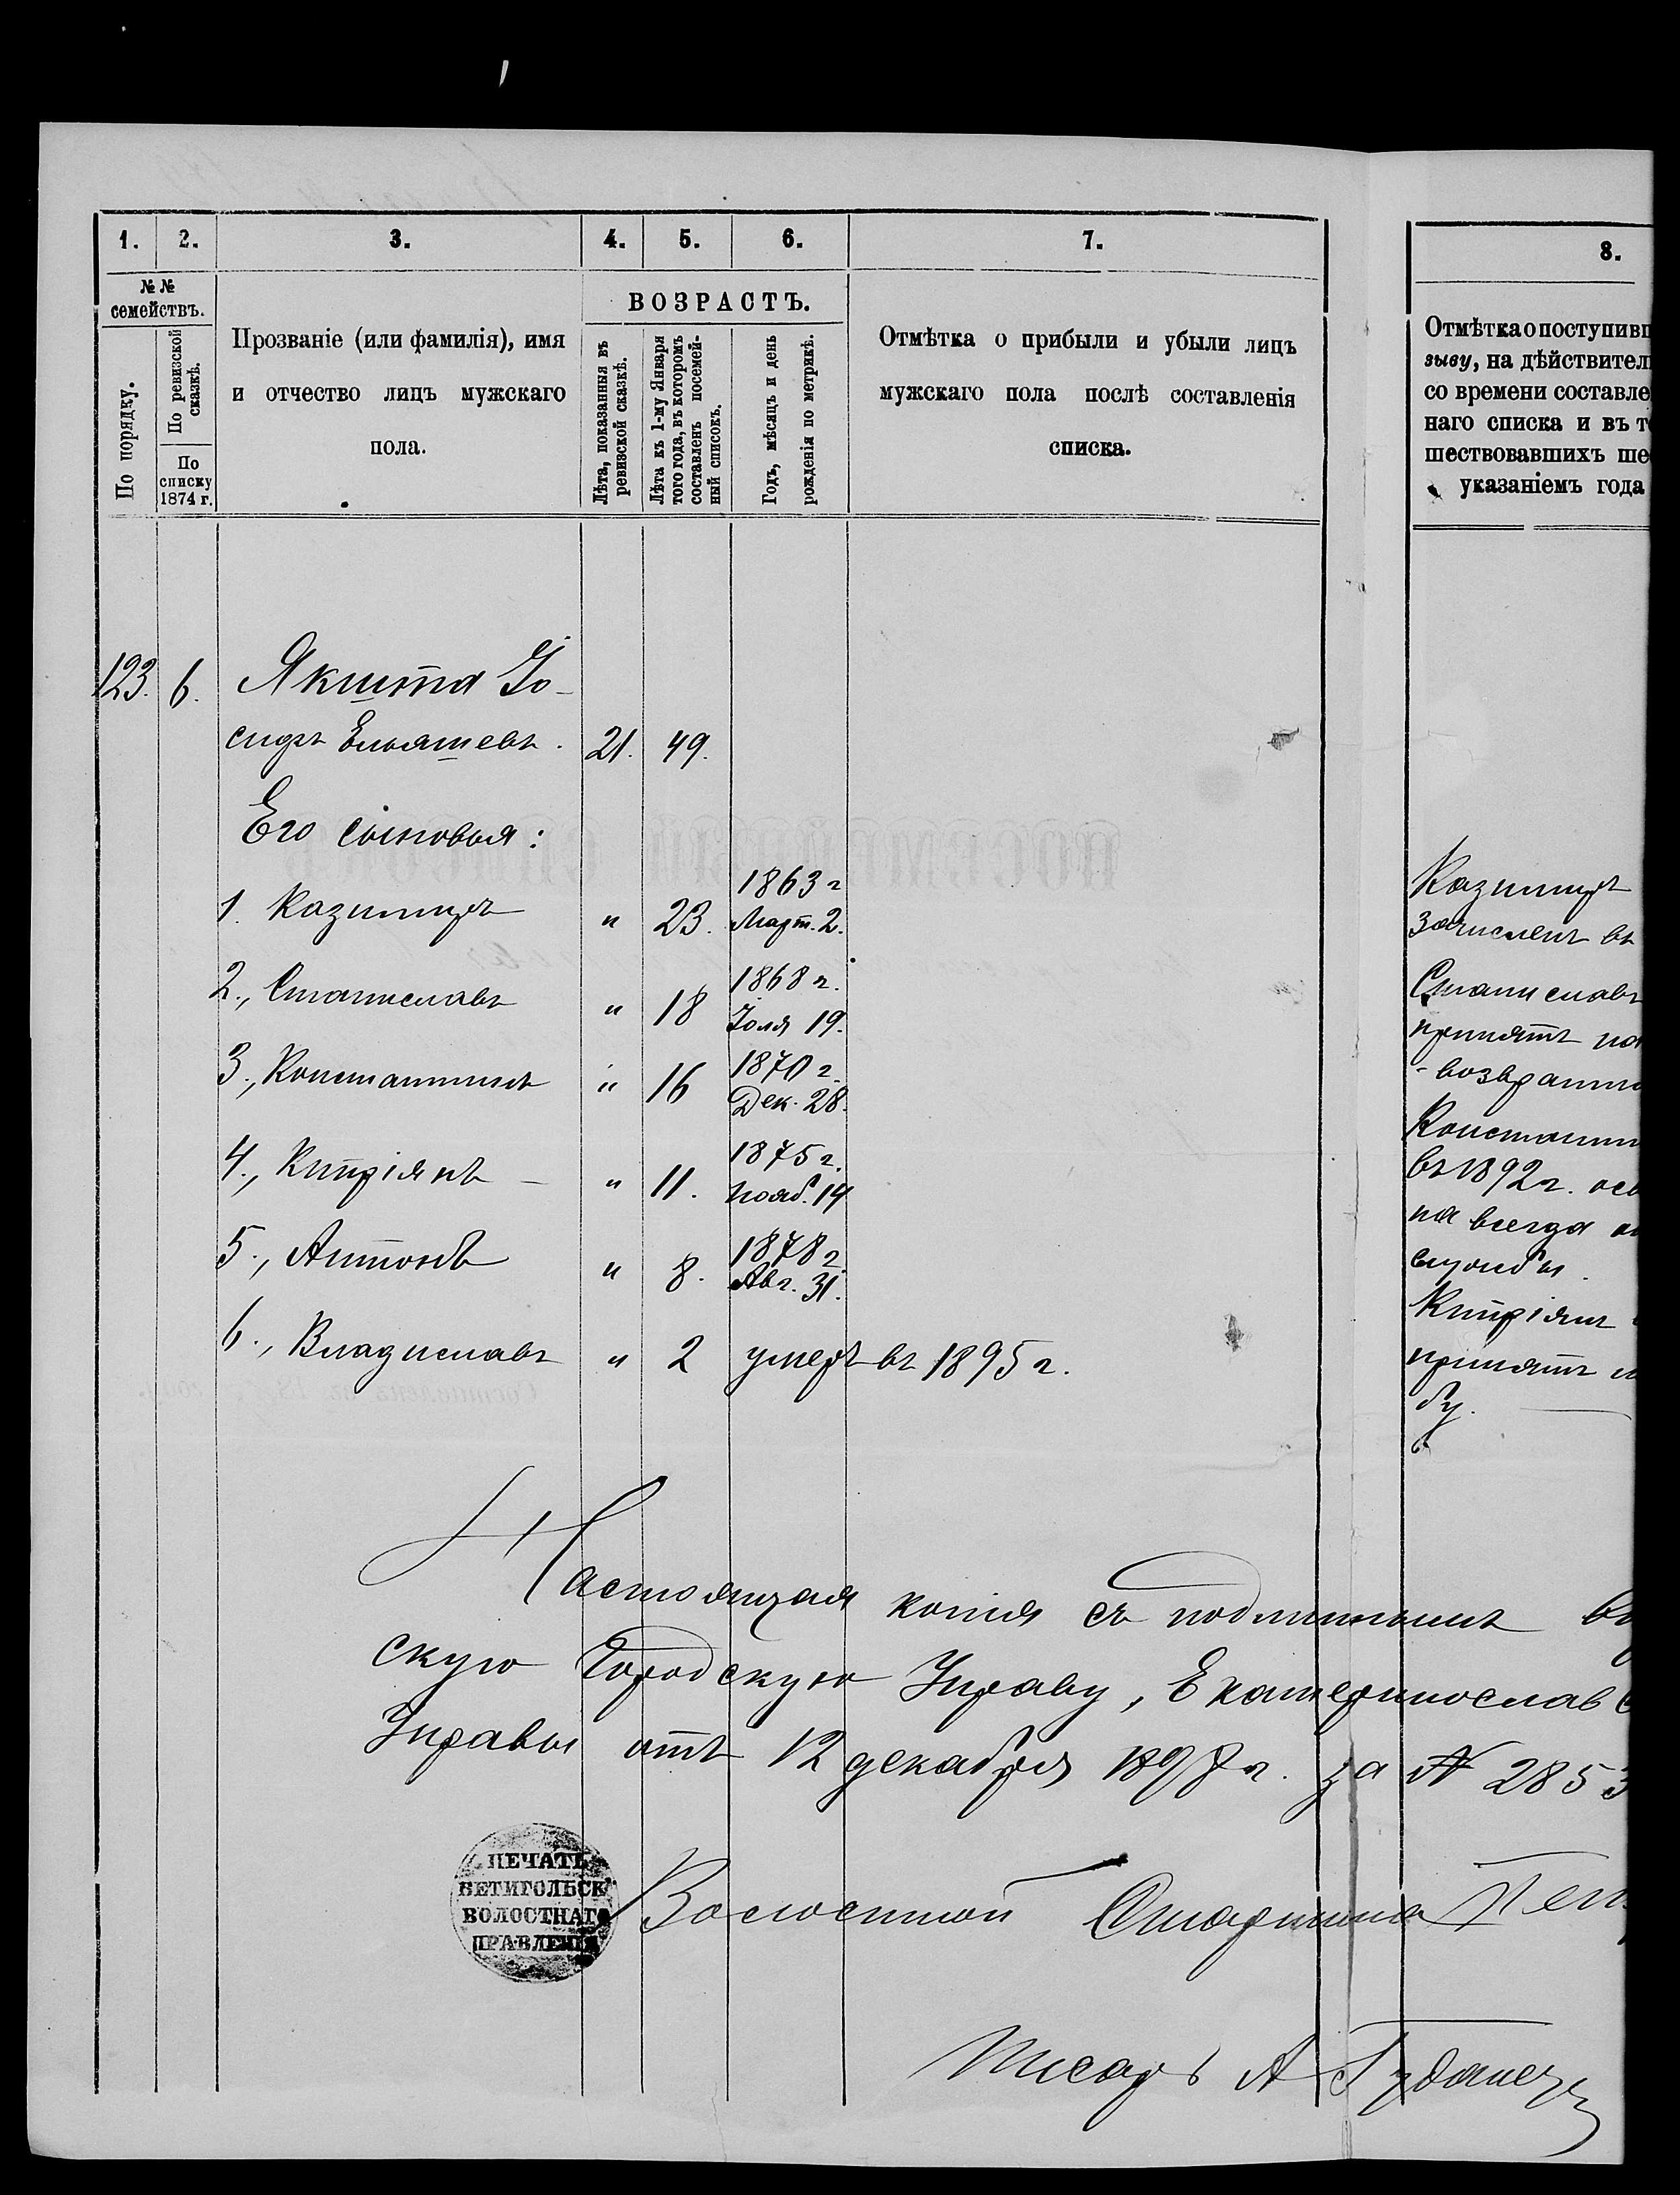 1. 2. 3. 4. 5. 6. 7. 8.
№ №
семействъ.
По порядку.
По ревизской
сказкѣ.
По
списку
1874 г.
Прозваніе (или фамилія), имя
и отчество лицъ мужскаго
пола.
ВОЗРАСТЪ.
Лѣта, показанныя въ
ревизской сказкѣ.
Лѣта къ 1-му Января
того года, въ которомъ
составленъ посемей-
ный списокъ.
Годъ, мѣсяцъ и день
рожденія по метрикѣ.
Отмѣтка о прибыли и убыли лицъ
мужскаго пола послѣ составленія
списка.
Отмѣтка о поступивш
зыву, на дѣйствител
со времени составле
наго списка и въ т
шествовавшихъ ше
указаніемъ года
123. 6. Якишта Іо-
сифъ Ельяшевъ. 21. 49.
Его сыновья:
1863 г
1. Казимиръ " 23. Март. 2.
1868 г.
2., Станиславъ " 18 Іоля 19.
1870 г.
3., Константинъ " 16 Дек. 28.
1875 г.
4., Кипріянъ – " 11. Нояб. 14
1878 г.
5., Антонъ " 8. Авг. 31.
6., Владиславъ " 2 умеръ въ 1895 г.
Казимиръ
зачисленъ въ
Станиславъ
принятъ на
возврати
Константин
въ 1892 г. осв
на всегда
службы.
Кипріянъ
принятъ
бу.
Настоящая копія съ подлиннымъ в
скую Городскую Управу, Екатеринославс
Управы отъ 12 декабря 1898 г. за № 2853
ПЕЧАТЬ
БЕТИГОЛЬСК.
ВОЛОСТНАГО
ПРАВЛЕНІЯ
Волостной Старшина Пет
Писарь А